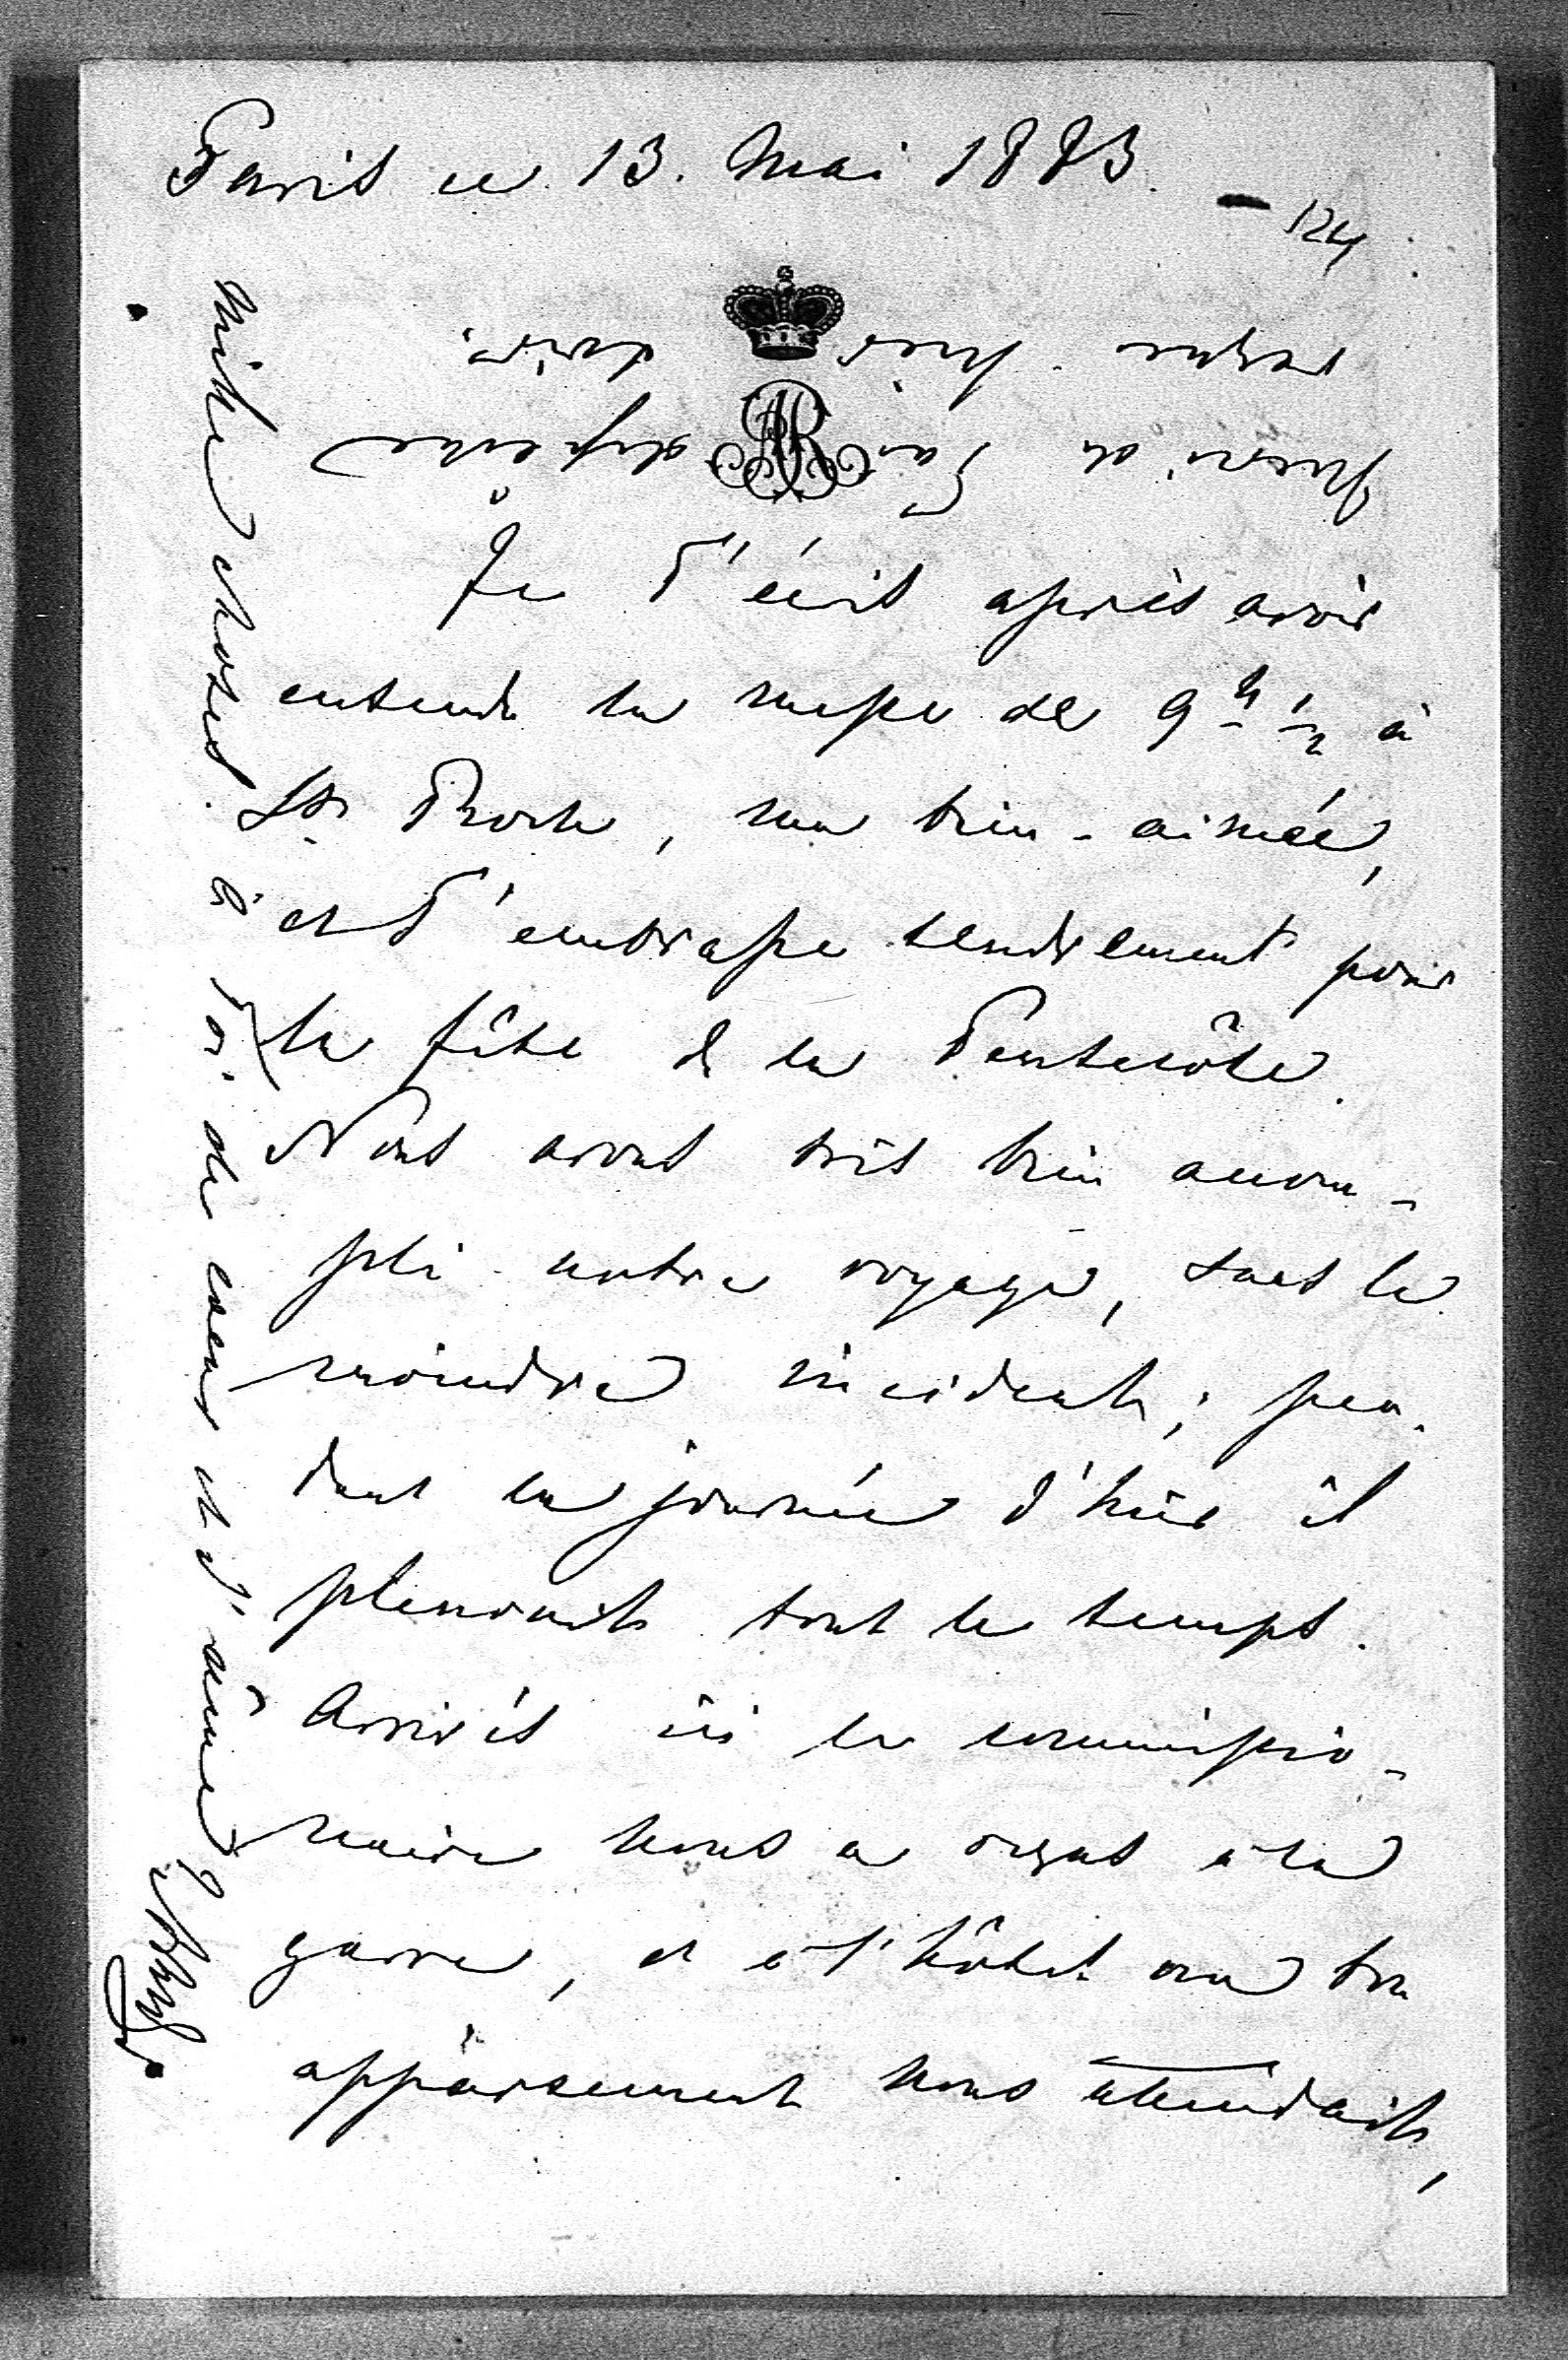 Paris ce 13. Mai 1883.
124
Je T'écris après avoir
entendu la messe de 9 h 1/2 à
St. Roch, ma bien-aimée,
et T'embrasse tendrement pour
la fête de la Pentecôte.
Nous avons très bien accom-
pli notre voyage, sans le
moindre incident; pen-
dant la journée d'hier il
pleuvait tout le temps.
Arrivés ici le commissio-
naire nous a reçus à la
garre, et à l'hôtel un bon
appartement nous attendait,
Merci de Ta dépêche
reçue hier soir.
mille choses à Toi de coeur et d'âme